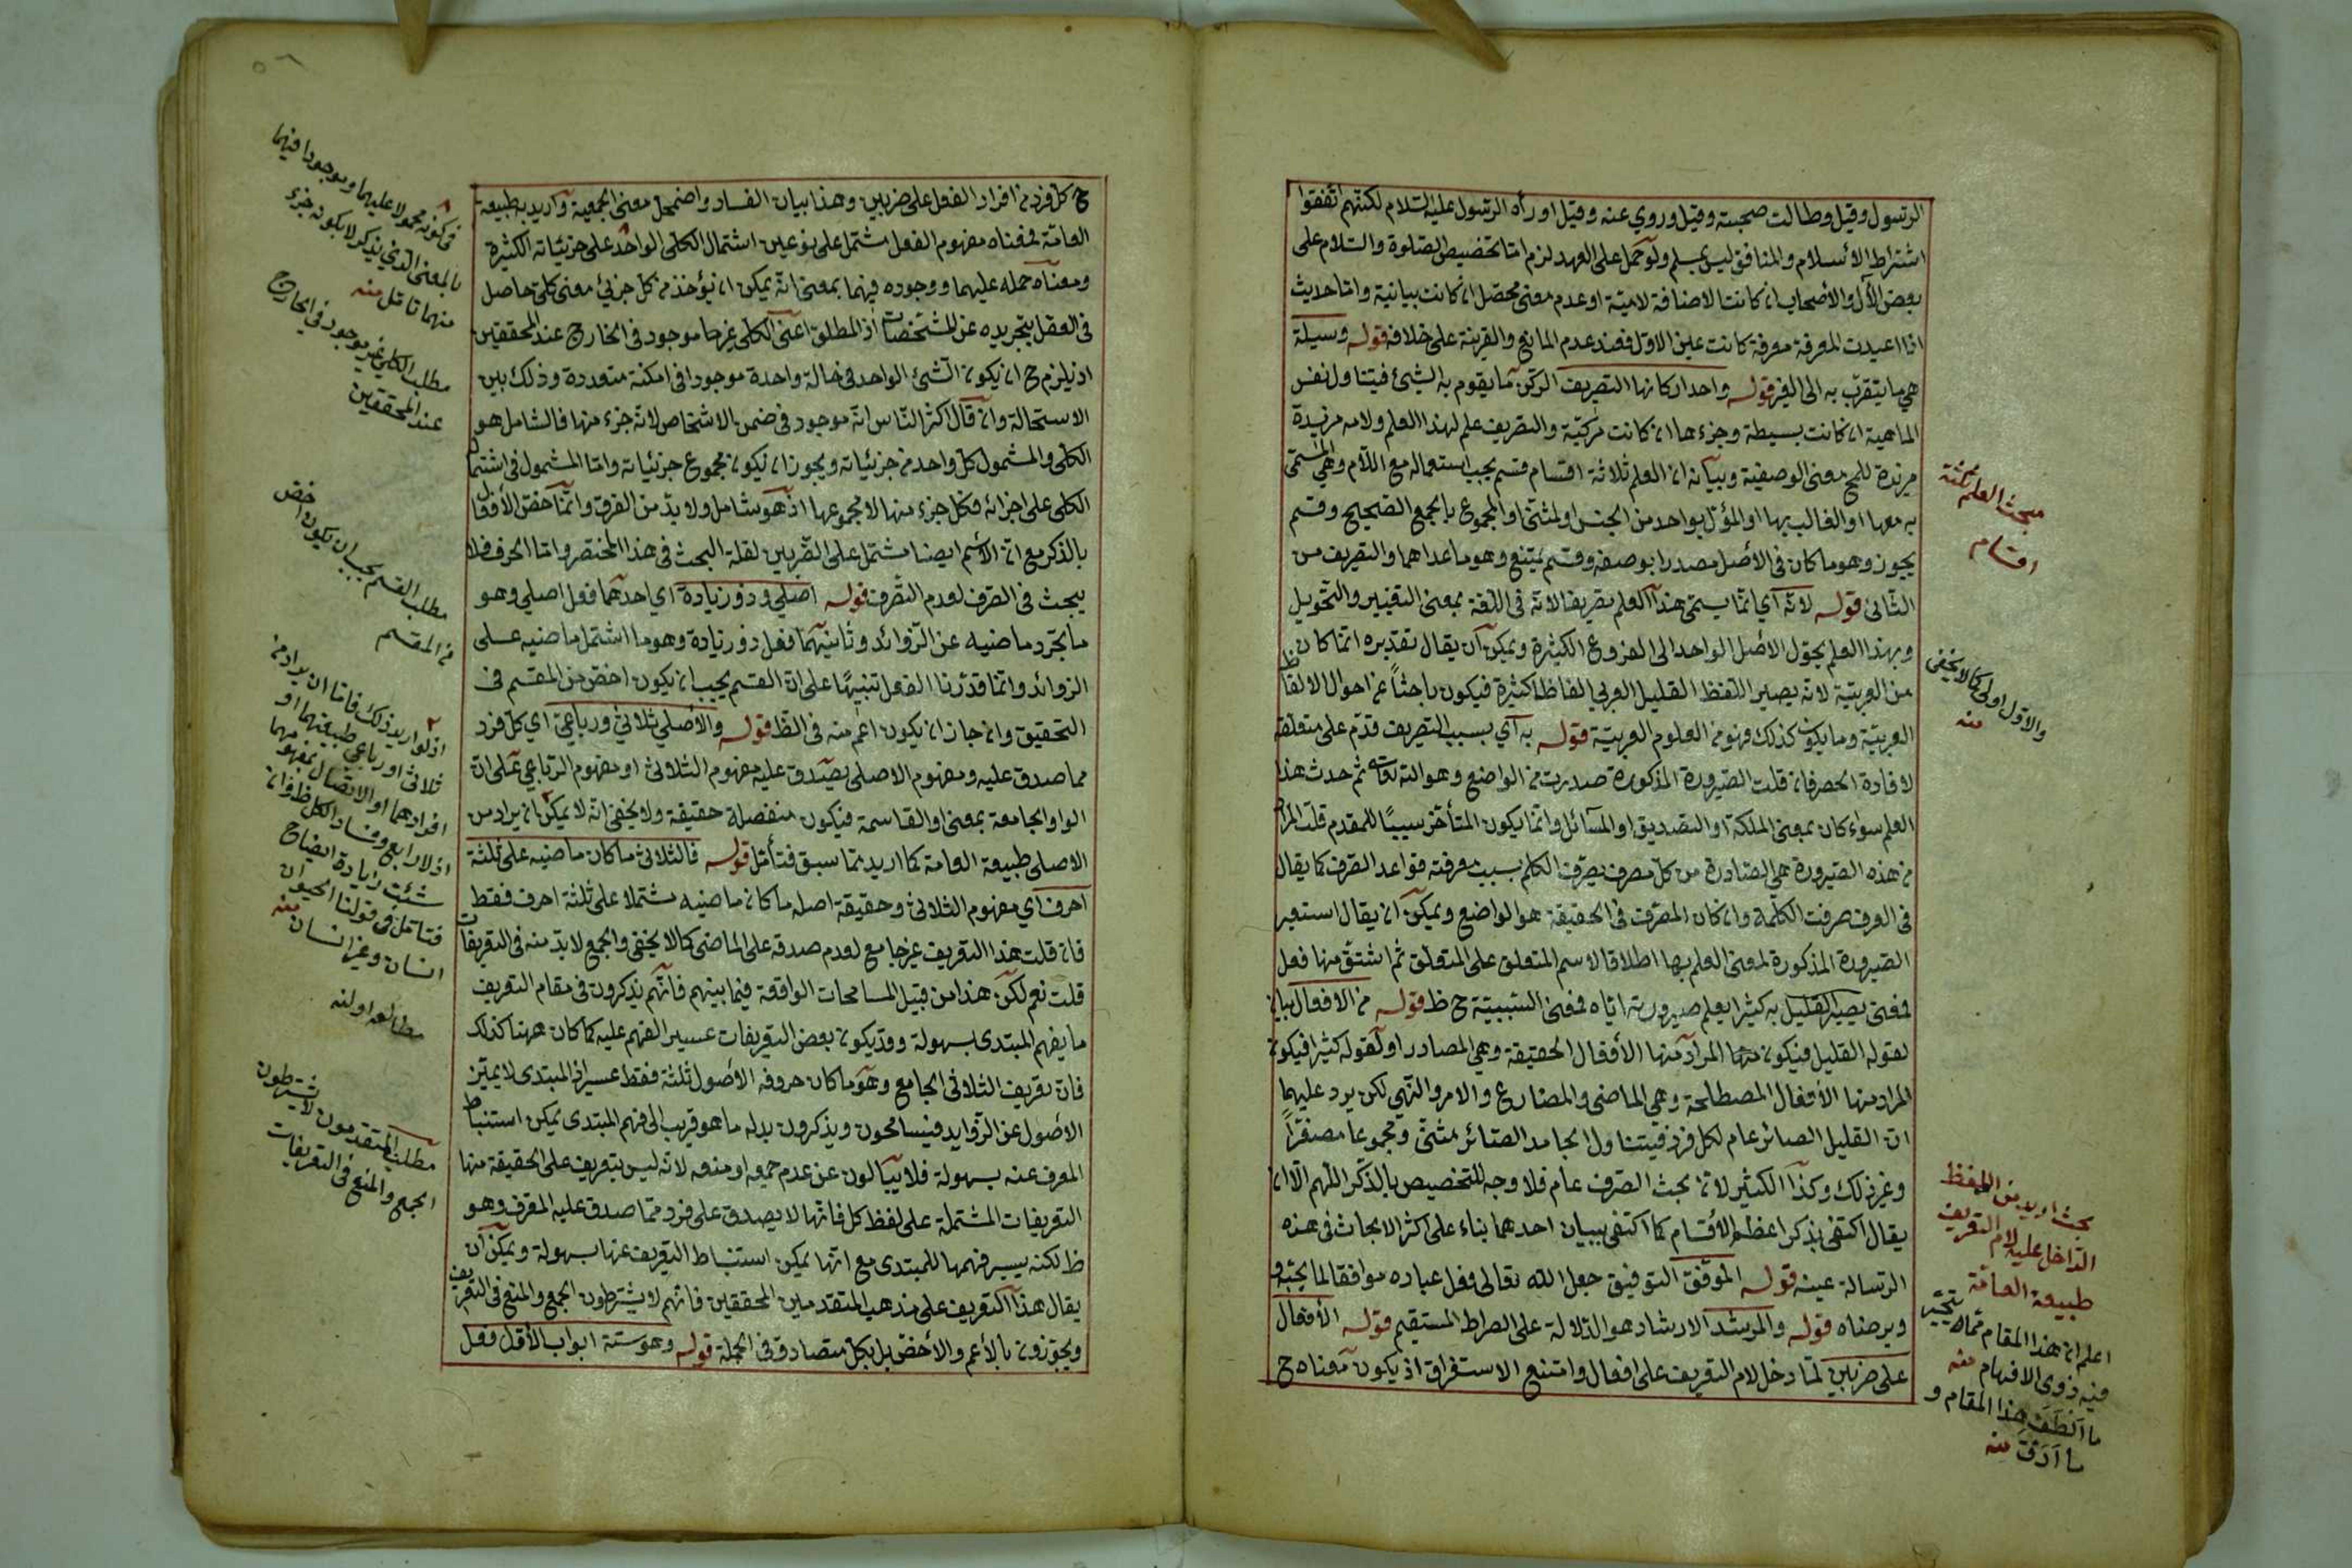 الرسول وقيل وطالت صحبته وقيل وروي عنه وقيل او رأه الرسول عليه السلام لكنهم اتفقوا
اشتراط الأسلام والمنافق ليس بمسلم ولو حمل على العهد لزم اما تخصيص الصلوة والسلام على
بعض الآل والأصحاب ان كانت الاضافة لامية او عدم معنى محصل ان كانت بيانية واما حديث
اذا اعيدت المعرفة معرفة كانت عين الاول فعند عدم المانع والقرينة على خلافه قوله وسيلة
هي ما يتقرب به الى الغير قوله واحد اركانها التصريف الركن ما يقوم به الشيئ فيتناول نفس
الماهية ان كانت بسيطة وجزءها ان كانت مركبة والتصريف علم لهذا العلم ولامه مزيدة
مزيدة للمح معنى الوصفية وبيانه ان العلم ثلاثة اقسام قسم يجب استعماله مع اللام وهي المسمى
به معها او الغالب بها او المؤل بواحد من الجنس او المثنى او المجموع بالجمع الصحيح وقسم
يجوز وهو ما كان في الأصل مصدرا بوصفه وقسم يمتنع وهو ما عداهما والتصريف من
الثاني قوله لانه اي انما يسمى هذا العلم تصريفا لانه في اللغة بمعنى التغيير والتحويل
وبهذا العلم يحول الأصل الواحد الى الفروع الكثيرة ويمكن أن يقال تقديره انما كان
من العربية لانه يصير اللفظ القليل العربي الفاظا كثيرة فيكون باحثاً عن احوال الالفاظ
العربية وما يكون كذلك فهو من العلوم العربية قوله به اي بسبب التصريف قدم على متعلقه
لافادة الحصر فان قلت الصيرورة المذكورة صدرت من الواضع وهو الله تعالى ثم حدث هذا
العلم سواء كان بمعنى الملكة او التصديق او المسائل وانما يكون المتأخر سببًا للمقدم قلت المراد
من هذه الصيرورة هي الصادرة من كل مصرف يصرف الكلم بسبب معرفته قواعد الصرف كما يقال
في العرف صرفت الكلمة وان كان المصرف في الحقيقة هو الواضع ويمكن ان يقال استعير
الصيرورة المذكورة لمعنى العلم بها اطلاقا لاسم المتعلق على المتعلق ثم اشتق منها فعل
فمعنى يصير القليل به كثيرا يعلم صيرورته اياه فمعنى السببية ح ظ قوله من الافعال بيان
لقوله القليل فيكون المراد منها الأفعال الحقيقة وهي المصادر او لقوله كثيرا فيكون
المراد منها الأفعال المصطلحة وهي الماضي والمضارع والامر والنهي لكن يرد عليهما
ان القليل الصائر عام لكل فرد فيتناول الجامد الصائر مثنى ومجموعا مصغراً
وغير ذلك وكذا الكثير لان بحث الصرف عام فلا وجه للتخصيص بالذكر اللهم الا ان
يقال اكتفى بذكر اعظم الأقسام كما اكتفى ببيان احدهما بناء على اكثر الابحاث في هذه
الرسالة عينه قوله الموفق التوفيق جعل الله تعالى فعل عباده موافقا لما يحبه و
ويرضاه قوله والمرشد الارشاد هو الدلالة على الصراط المستقيم قوله الأفعال
على ضربين لما دخل لام التعريف على افعال وامتنع الاستغراق اذ يكون معناه ح
مبحث العلم ثلثة
اقسام
والاول اولى كما لا يخفى
منه
بحث اريد من اللفظ
الداخل عليه لام التعريف
طبيعة العامة
اعلم ان هذا المقام مما تحير
فيه ذوى الافهام منه
ما الطف هذا المقام و
ما ادق منه
ح كل فرد من افراد الفعل على ضربين وهذا بيان الفساد واضمحل معنى الجمعية واريد به طبيعة
العامة فمعناه مفهوم الفعل مشتمل على نوعين اشتمال الكلى الواحد على جزئياته الكثيرة
ومعناه حمله عليهما ووجوده فيهما بمعنى انه يمكن ان يؤخذ من كل جزئي معنى كلي حاصل
في العقل بتجريده عن المشخصات اذ المطلق اعنى الكلى غير موجود في الخارج عند المحققين
اذ يلزم ح ان يكون الشئ الواحد في حالة واحدة موجودا في امكنة متعددة وذلك بين
الاستحالة وان قال اكثر الناس انه موجود في ضمن الاشخاص لانه جزء منها فالشامل هو
الكلى والمشمول كل واحد من جزئياته ويجوز ان يكون مجموع جزئياته واما المشمول في اشتمال
الكلى على اجزائه فكل جزء منها لا مجموعها اذ هو شامل ولا بد من الفرق وانما خص الأفعال
بالذكر مع ان الأسم ايضا مشتمل على الضربين لقلة البحث في هذا المختصر واما الحرف فلا
يبحث في الصرف لعدم التصرف قوله اصلي وذو زيادة اي احدهما فعل اصلي وهو
ما تجرد ماضيه عن الزوائد وثانيهما فعل ذو زيادة وهو ما اشتمل ماضيه على
الزوائد وانما قدرنا الفعل تنبيهًا على ان القسم يجب ان يكون اخص من المقسم في
التحقيق وان جاز ان يكون اعم منه في الظ قوله والأصلي ثلاثي ورباعي اي كل فرد
مما صدق عليه مفهوم الاصلى يصدق عليه مفهوم الثلاثى او مفهوم الرباعي على ان
الواو الجامعة بمعنى او القاسمة فيكون منفصلة حقيقة ولا يخفى انه لا يمكن ان يراد من
الاصلى طبيعة العامة كما اريد مما سبق فتأمل قوله فالثلاثى ما كان ماضيه على ثلثة
احرف اي مفهوم الثلاثى وحقيقة اصله ما كان ماضيه مشتملا على ثلثة احرف فقط
فان قلت هذا التعريف غير جامع لعدم صدقه على الماضى كما لا يخفى والجمع لا بد منه في التعريفات
قلت نعم لكن هذا من قبيل المسامحات الواقعة فيما بينهم فانهم يذكرون في مقام التعريف
ما يفهم المبتدى بسهولة وقد يكون بعض التعريفات عسير الفهم عليه كما كان ههنا كذلك
فان تعريف الثلاثى الجامع وهو ما كان حروفه الأصول ثلثة فقط عسير اذ المبتدى لا يميز
الأصول عن الزوايد فيتسامحون ويذكرون بدله ما هو قريب الى فهم المبتدى يمكن استنباط
المعرف عنه بسهولة فلا يبالون عن عدم جمعه او منعه لانه ليس بتعريف على الحقيقة منها
التعريفات المشتملة على لفظ كل فانها لا يصدق على فرد مما صدق عليه المعرف وهو
ظ لكنه يسير فهمها للمبتدى مع انها يمكن استنباط التعريف عنها بسهولة ويمكن أن
يقال هذا التعريف على مذهب المتقدمين المحققين فانهم لا يشترطون الجمع والمنع في التعريف
ويجوزون بالأعم والأخص بل بكل متصادق في الجملة قوله وهو ستة ابواب الأول فعل
فى كونه محمولا عليهما وموجودا فيهما
بالمعنى الذي يذكر لا بكونه جزء
منهما تامل منه
مطلب الكلي غير موجود في الخارج
عند المحققين
مطلب القسم يجب ان يكون اخص
من المقسم
اذ لو اريد ذلك فاما ان يراد من
ثلاثى او رباعي طبيعتهما او
افرادهما او الاتصال بمفهومهما
اذ لا رابع وفساد الكل ظ وان
شئت زيادة ايضاح
فتامل في قولنا الحيوان
انسان وغير انسان منه
مطلب المتقدمون لا يشترطون
الجمع والمنع في التعريفات